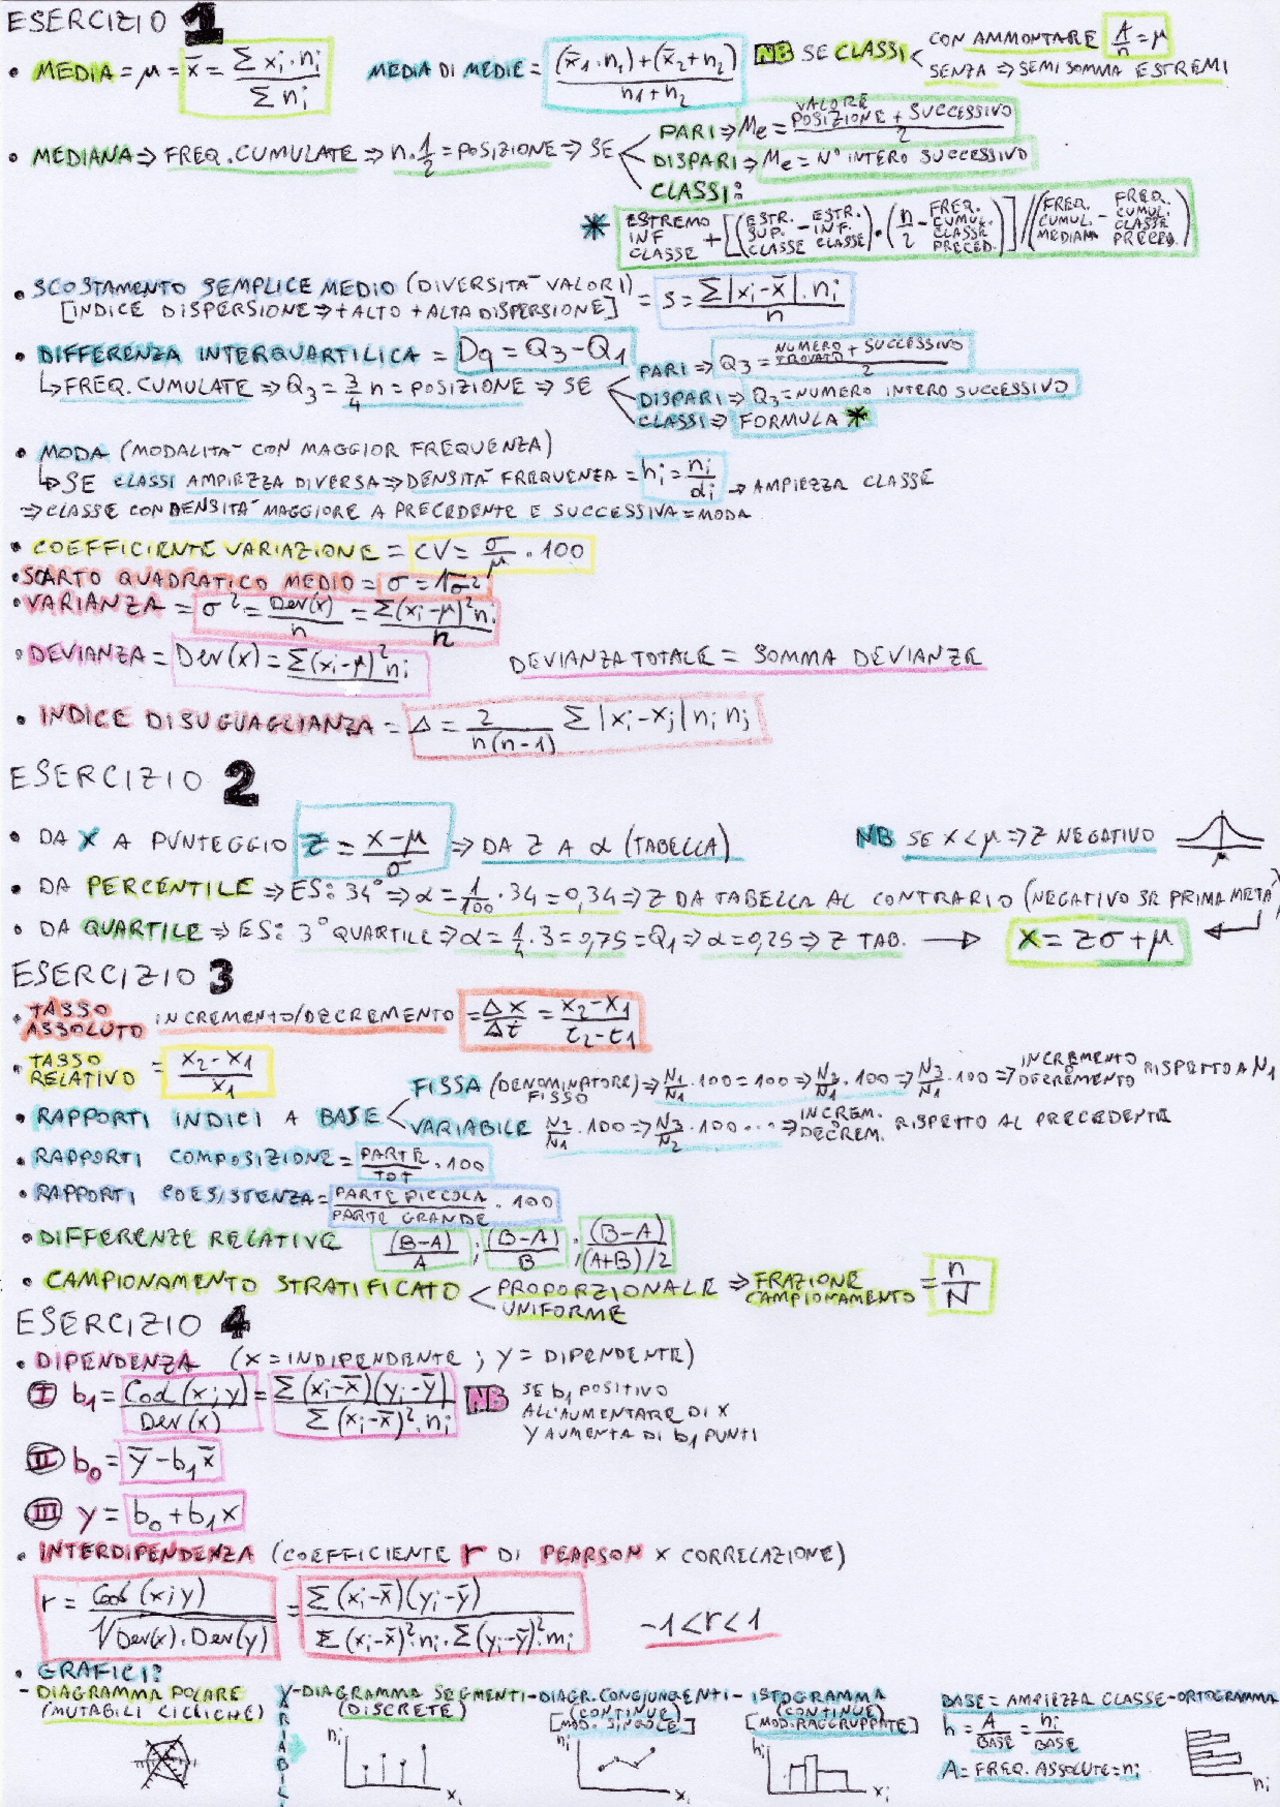 ESERCIZIO 1
• MEDIA = μ = x̄ = Σ xi·ni / Σ ni   MEDIA DI MEDIE = (x̄1·n1)+(x̄2+n2) / n1+n2   NB SE CLASSI < CON AMMONTARE A/n = μ
SENZA ⇒ SEMISOMMA ESTREMI
• MEDIANA ⇒ FREQ. CUMULATE ⇒ n·1/2 = POSIZIONE ⇒ SE < PARI ⇒ Me = VALORE POSIZIONE + SUCCESSIVO / 2
DISPARI ⇒ Me = N° INTERO SUCCESSIVO
CLASSI:
* ESTREMO INF CLASSE + [(ESTR. SUP. CLASSE - ESTR. INF. CLASSE)·(n/2 - FREQ. CUMUL. CLASSE PRECED.)] / (FREQ. CUMUL. MEDIANA - FREQ. CUMUL. CLASSE PRECED.)
• SCOSTAMENTO SEMPLICE MEDIO (DIVERSITA' VALORI) = S = Σ|xi-x̄|·ni / n
[INDICE DISPERSIONE ⇒ +ALTO +ALTA DISPERSIONE]
• DIFFERENZA INTERQUARTILICA = Dq = Q3-Q1
↳ FREQ. CUMULATE ⇒ Q3 = 3/4 n = POSIZIONE ⇒ SE < PARI ⇒ Q3 = NUMERO TROVATO + SUCCESSIVO / 2
DISPARI ⇒ Q3 = NUMERO INTERO SUCCESSIVO
CLASSI ⇒ FORMULA *
• MODA (MODALITA' CON MAGGIOR FREQUENZA)
↳ SE CLASSI AMPIEZZA DIVERSA ⇒ DENSITA' FREQUENZA = hi = ni/di → AMPIEZZA CLASSE
⇒ CLASSE CON DENSITA' MAGGIORE A PRECEDENTE E SUCCESSIVA = MODA
• COEFFICIENTE VARIAZIONE = CV = σ/μ · 100
• SCARTO QUADRATICO MEDIO = σ = √σ²
• VARIANZA = σ² = Dev(x)/n = Σ(xi-μ)²ni / n
• DEVIANZA = Dev(x) = Σ(xi-μ)²ni   DEVIANZA TOTALE = SOMMA DEVIANZE
• INDICE DISUGUAGLIANZA = Δ = 2/n(n-1) Σ|xi-xj| ni nj
ESERCIZIO 2
• DA X A PUNTEGGIO Z = x-μ/σ ⇒ DA Z A α (TABELLA)   NB SE X<μ ⇒ Z NEGATIVO   μ
• DA PERCENTILE ⇒ ES: 34° ⇒ α = 1/100 · 34 = 0,34 ⇒ Z DA TABELLA AL CONTRARIO (NEGATIVO SE PRIMA META')
• DA QUARTILE ⇒ ES: 3° QUARTILE ⇒ α = 1/4 · 3 = 0,75 = Q1 ⇒ α = 0,25 ⇒ Z TAB. → X = Zσ+μ
ESERCIZIO 3
• TASSO ASSOLUTO INCREMENTO/DECREMENTO = Δx/Δt = x2-x1 / t2-t1
• TASSO RELATIVO = x2-x1 / x1
• RAPPORTI INDICI A BASE < FISSA (DENOMINATORE FISSO) ⇒ N1/N1·100=100 ⇒ N2/N1·100 ⇒ N3/N1·100 ⇒ INCREMENTO O DECREMENTO RISPETTO A N1
VARIABILE N2/N1·100 ⇒ N3/N2·100 ... ⇒ INCREM. O DECREM. RISPETTO AL PRECEDENTE
• RAPPORTI COMPOSIZIONE = PARTE/TOT · 100
• RAPPORTI COESISTENZA = PARTE PICCOLA / PARTE GRANDE · 100
• DIFFERENZE RELATIVE (B-A)/A ; (B-A)/B ; (B-A)/(A+B)/2
• CAMPIONAMENTO STRATIFICATO < PROPORZIONALE ⇒ FRAZIONE CAMPIONAMENTO = n/N
UNIFORME
ESERCIZIO 4
• DIPENDENZA (X = INDIPENDENTE ; Y = DIPENDENTE)
I b1 = Cod(x;y)/Dev(x) = Σ(xi-x̄)(yi-ȳ) / Σ(xi-x̄)²·ni   NB SE b1 POSITIVO
ALL'AUMENTARE DI X
Y AUMENTA DI b1 PUNTI
II b0 = ȳ-b1x̄
III y = b0+b1x
• INTERDIPENDENZA (COEFFICIENTE r DI PEARSON X CORRELAZIONE)
r = Cod(x;y) / √Dev(x)·Dev(y) = Σ(xi-x̄)(yi-ȳ) / Σ(xi-x̄)²·ni·Σ(yi-ȳ)²·mi   -1<r<1
• GRAFICI:
- DIAGRAMMA POLARE (MUTABILI CICLICHE)
VARIABILI
- DIAGRAMMA SEGMENTI (DISCRETE) ni xi
- DIAGR. CONGIUNGENTI (CONTINUE) [MOD. SINGOLE] ni xi
- ISTOGRAMMA (CONTINUE) [MOD. RAGGRUPPATE] hi xi
BASE = AMPIEZZA CLASSE
h = A/BASE = ni/BASE
A = FREQ. ASSOLUTE = ni
- ORTOGRAMMA ni